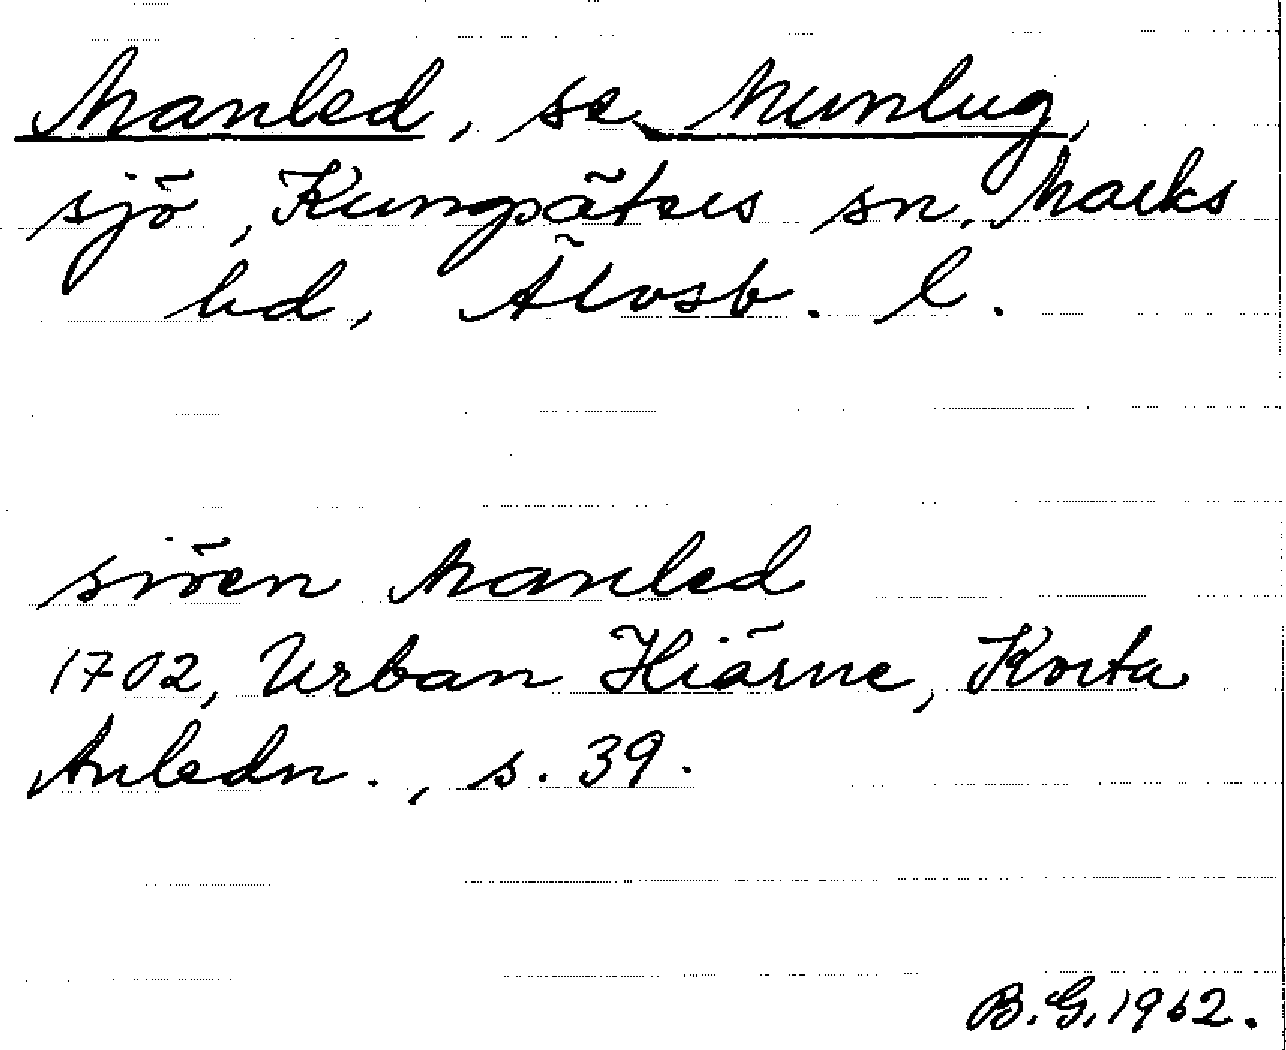 Manled, se Munlug,
sjö, Kungsäters sn, Marks
hd, Älvsb. l.
siöen Manled
1702, Urban Hiärne, Korta
Anledn., s. 39.
B.G. 1962.